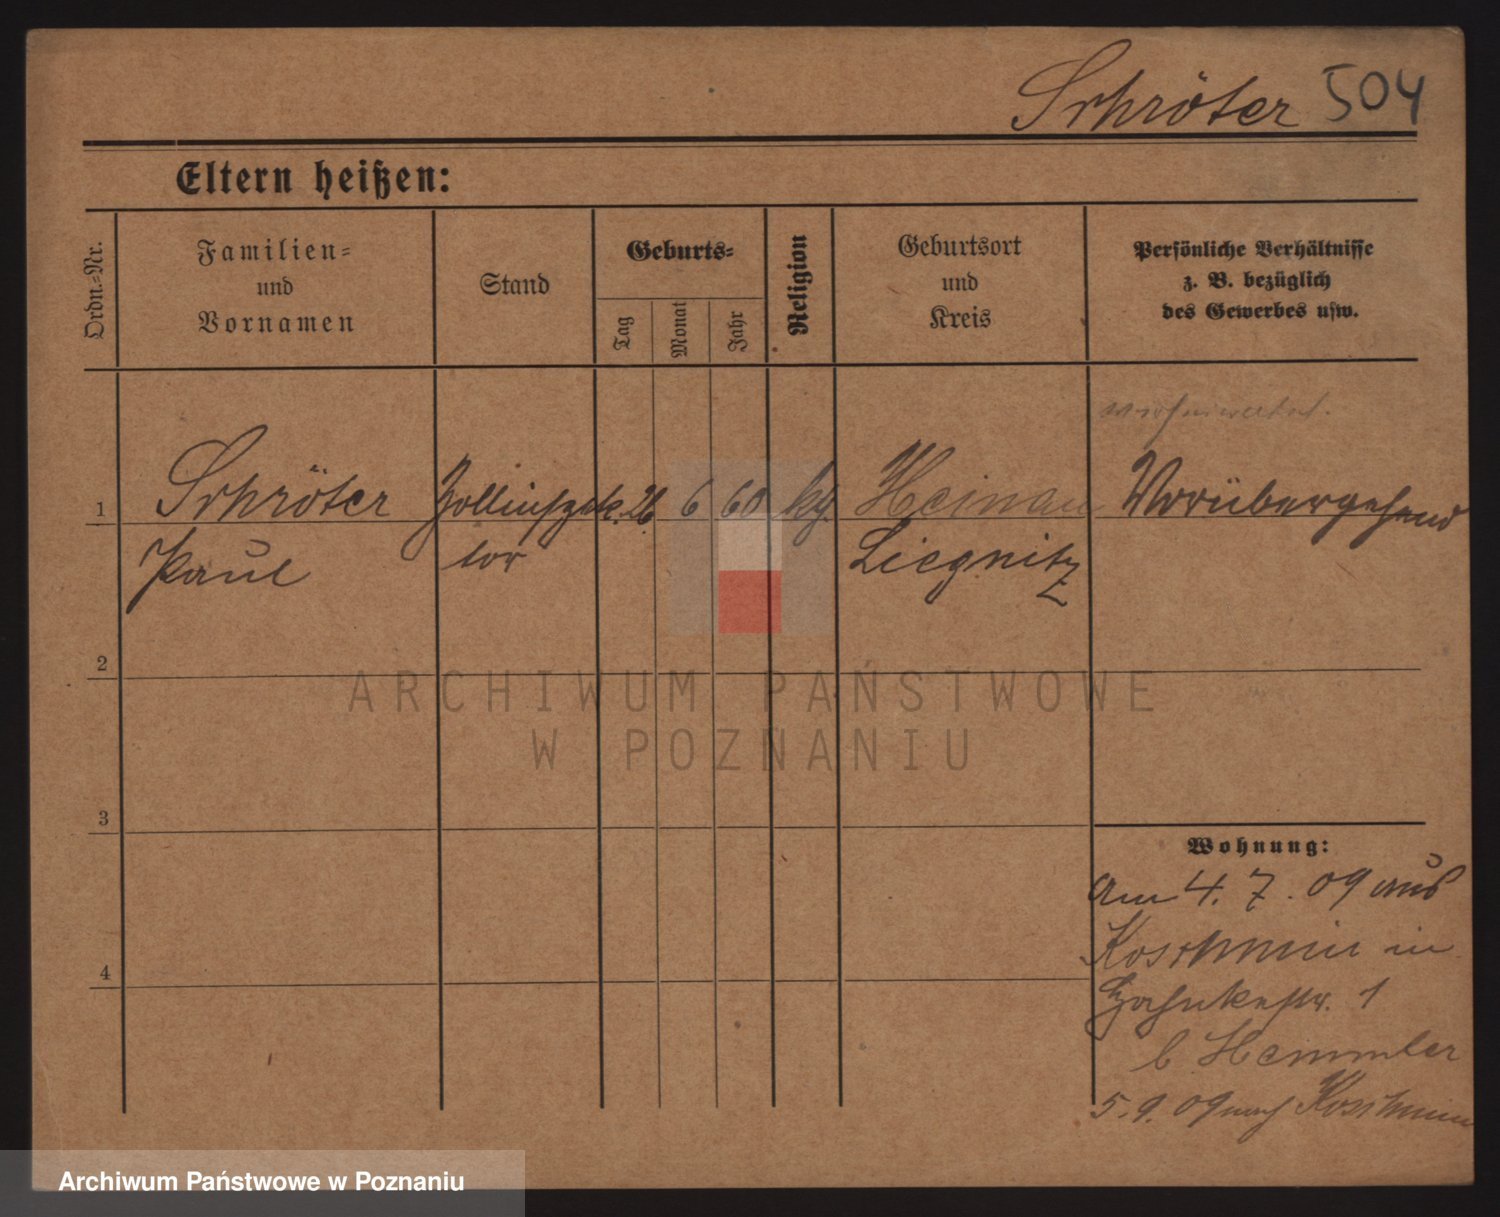 Schröter 504
Eltern heißen:
Ordn.-Nr.
Familien-
und
Vornamen
Stand
Geburts-
Tag
Monat
Jahr
Religion
Geburtsort
und
Kreis
Persönliche Verhältnisse
z. B. bezüglich
des Gewerbes usw.
1
Schröter
Paul
Zollinspek-
tor
26
6
60
Heinau
Liegnitz
Vorübergehend
2
3
4
ARCHIWUM PAŃSTWOWE
W POZNANIU
Wohnung:
Am 4. 7. 09 aus
Koschmin in
1
b. Hemmler
5. 9. 09 nach Koschmin
Archiwum Państwowe w Poznaniu